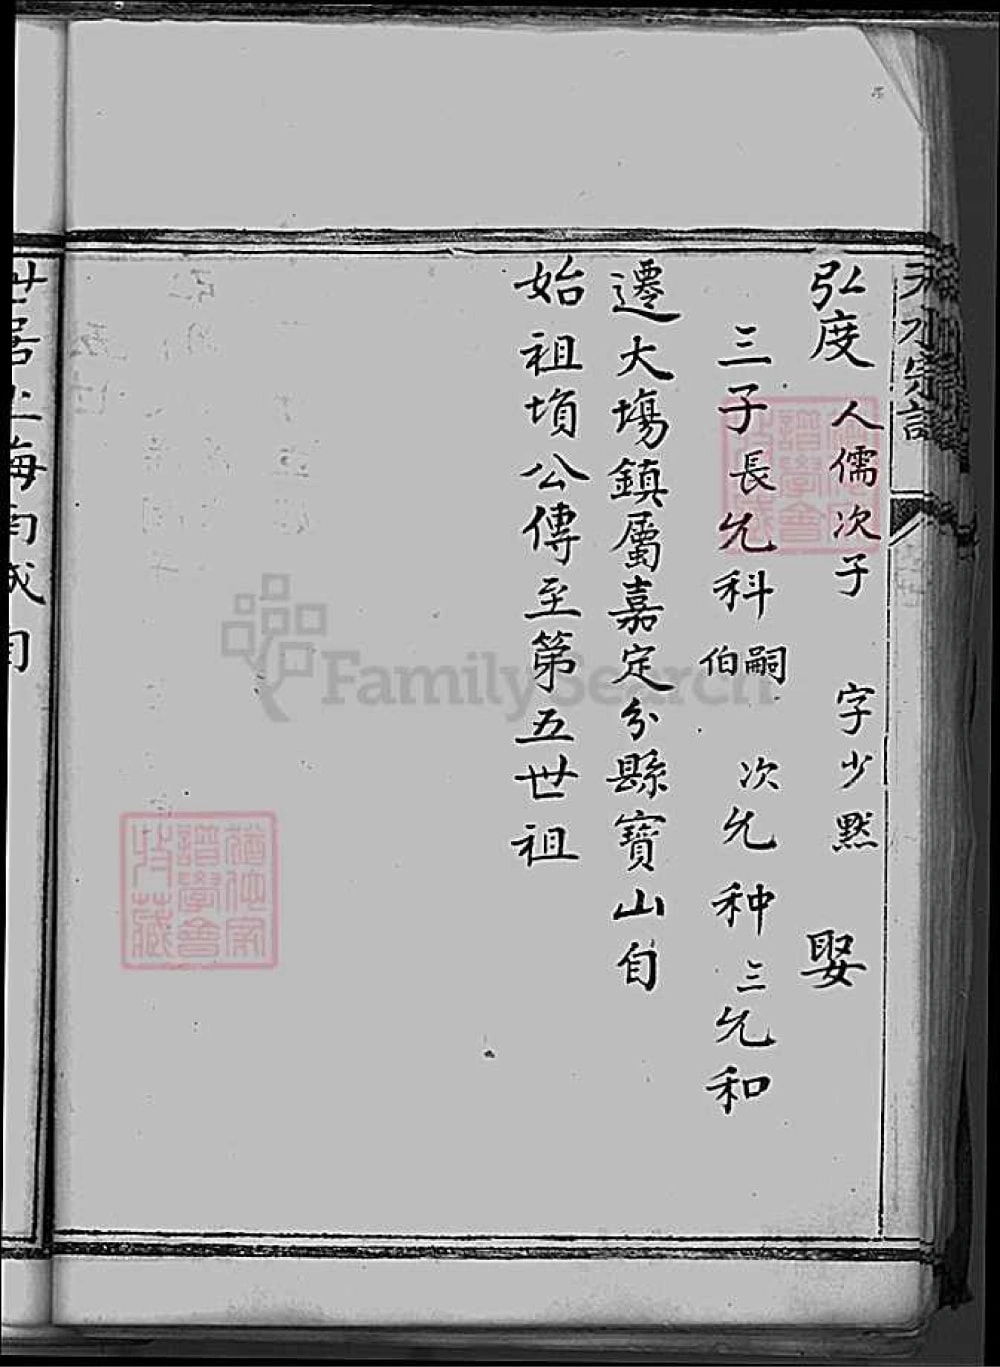 天水宗譜
弘度 人儒次子 字少黙 娶
三子長允科嗣伯 次允种 三允和
遷大場鎮屬嘉定分縣寶山自
始祖項公傳至第五世祖
世居上海南城自
FamilySearch